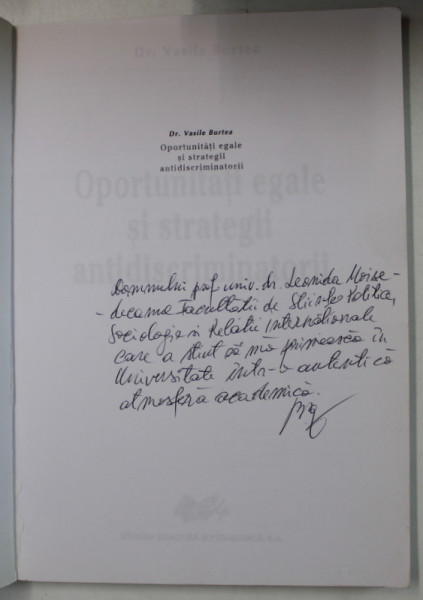 Dr. Vasile Burtea
Dr. Vasile Burtea
Oportunități egale
și strategii
antidiscriminatorii
Oportunități egale
și strategii
antidiscriminatorii
Domnului prof. univ. dr. Leonida Moise -
- decanul Facultății de Științe Politice,
Sociologie și Relații Internaționale
care a știut să mă primească în
Universitate într-o autentică
atmosferă academică.